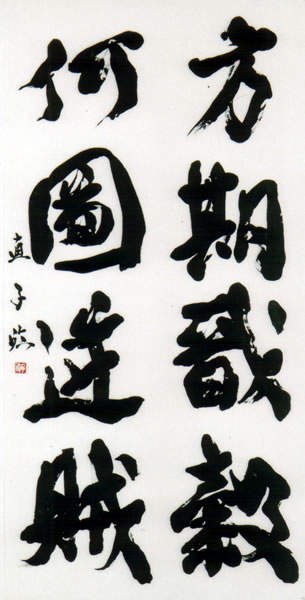 方期戩穀
何圖逆賊
直子